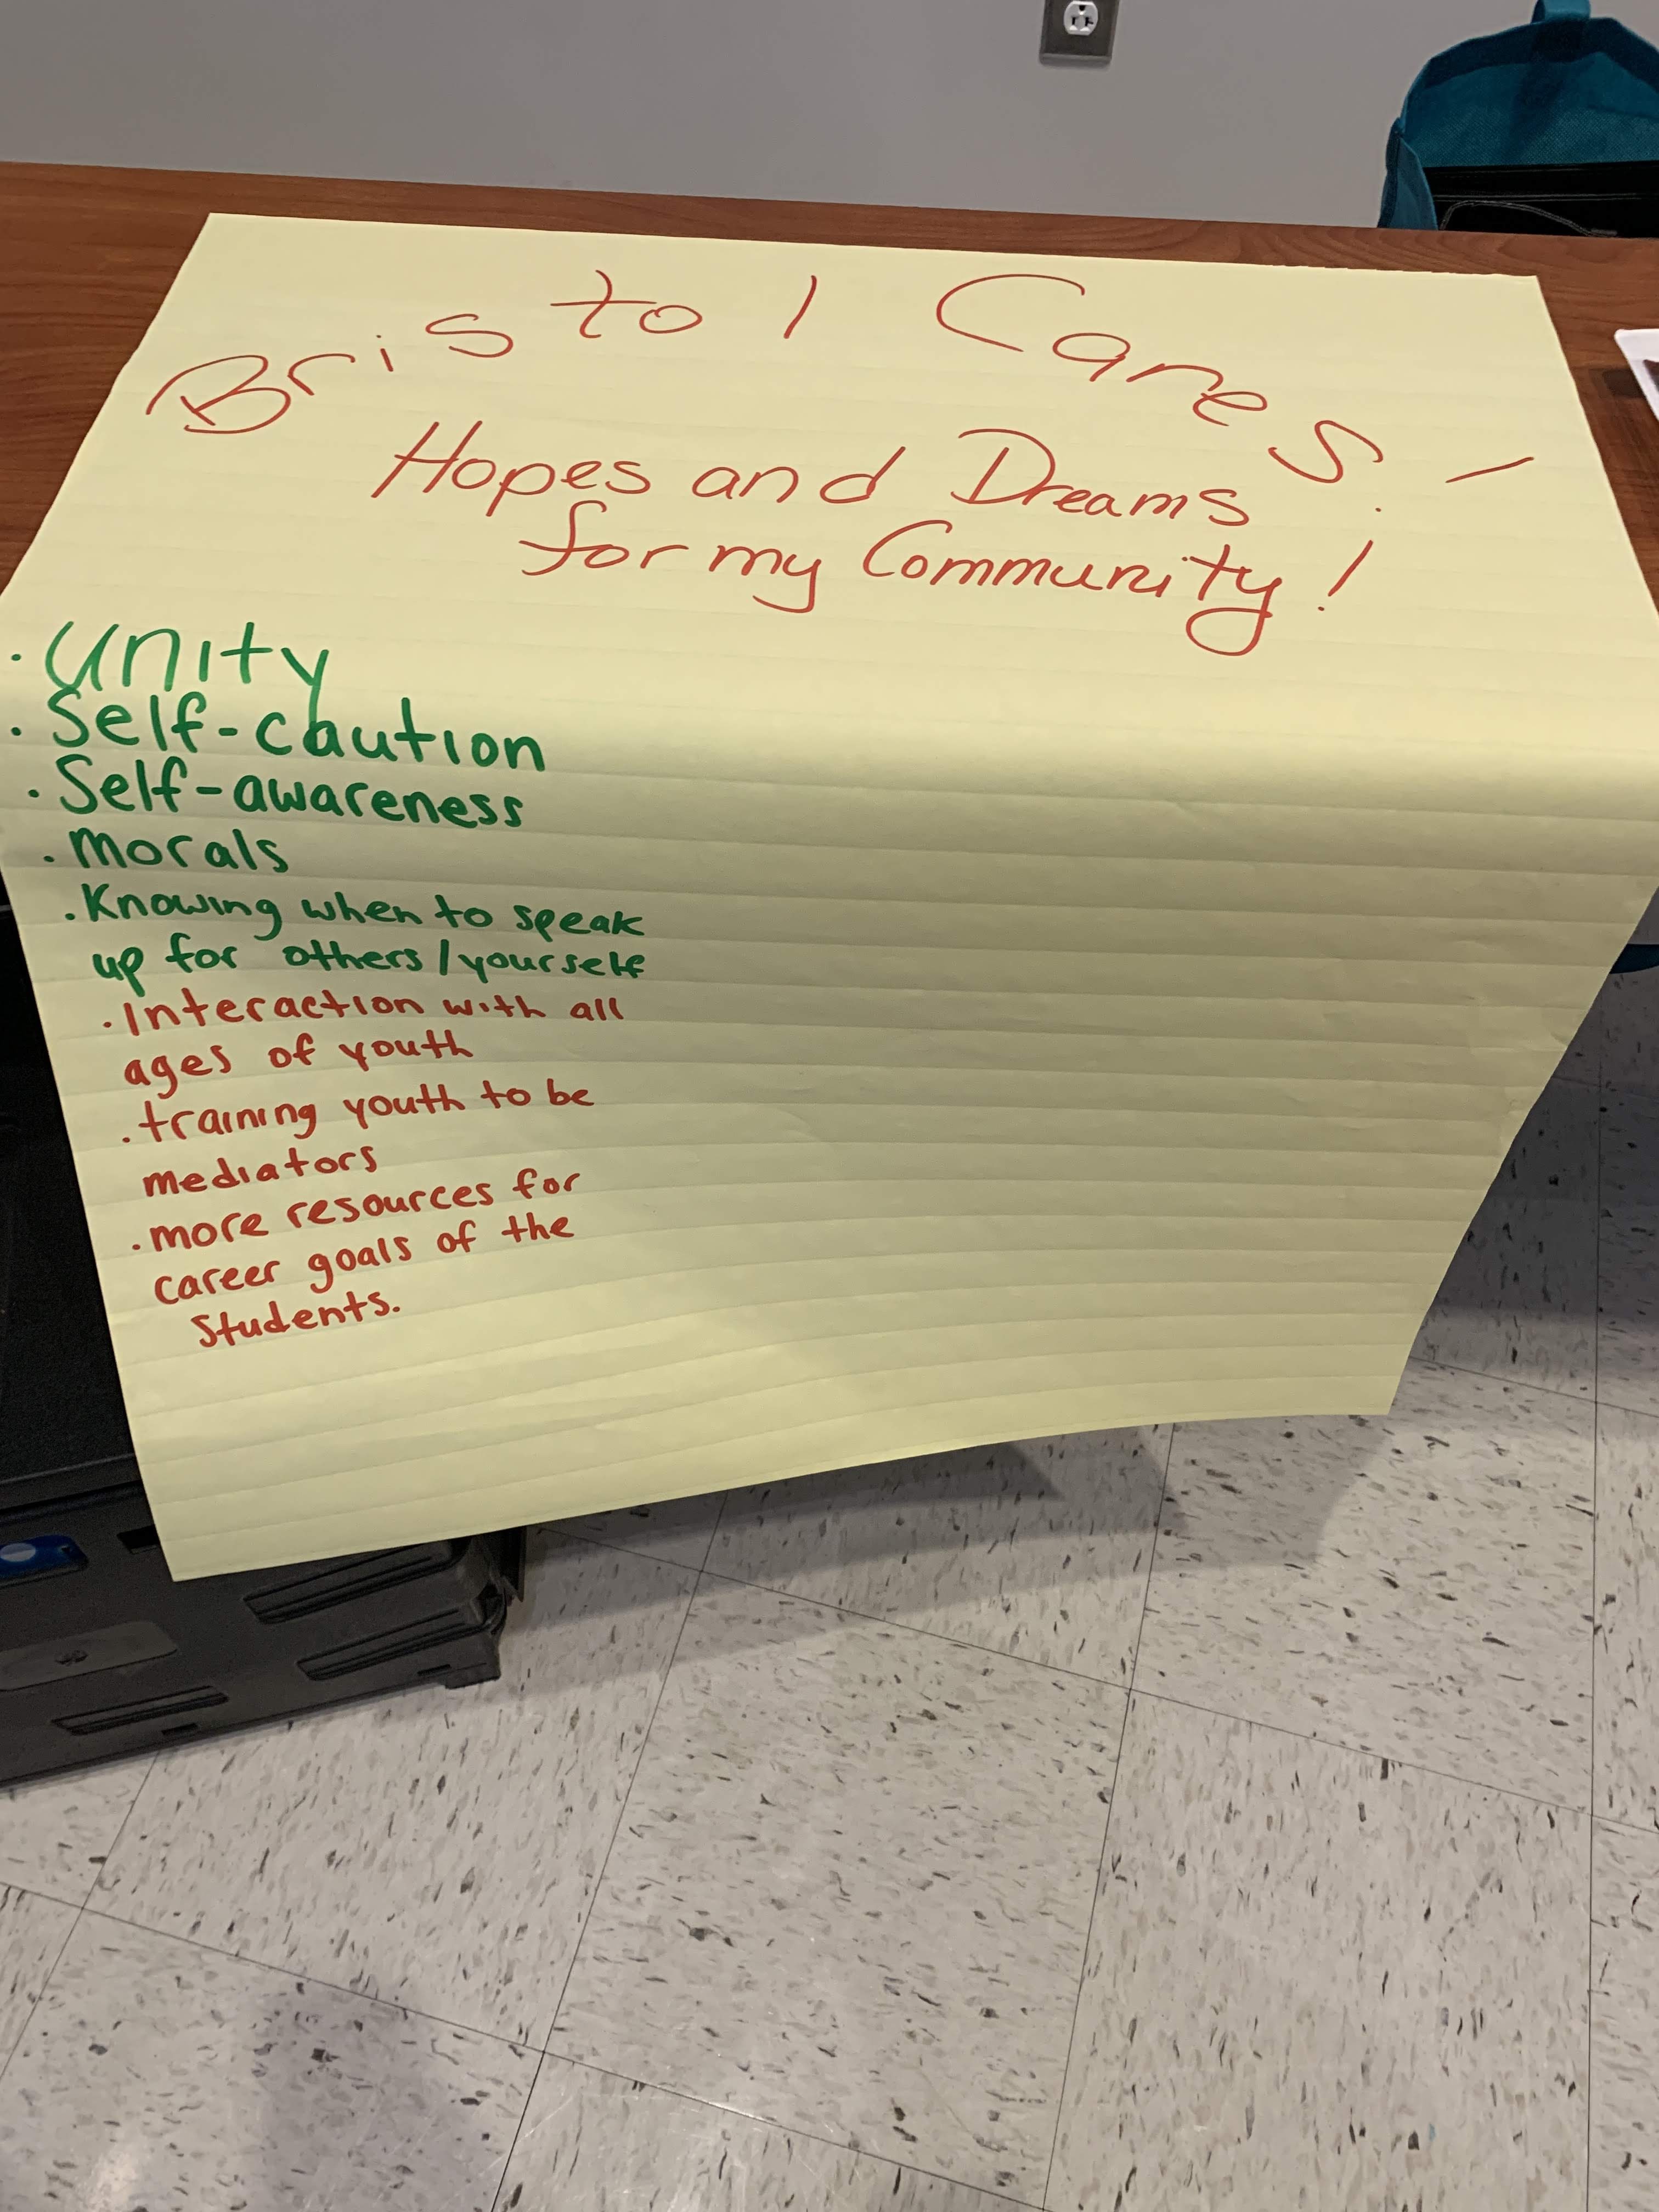 Bristol Cares!
Hopes and Dreams
for my Community!
· Unity
· Self-caution
· Self-awareness
· morals
· Knowing when to speak
up for others/yourself
· Interaction with all
ages of youth
· training youth to be
mediators
· more resources for
career goals of the
Students.